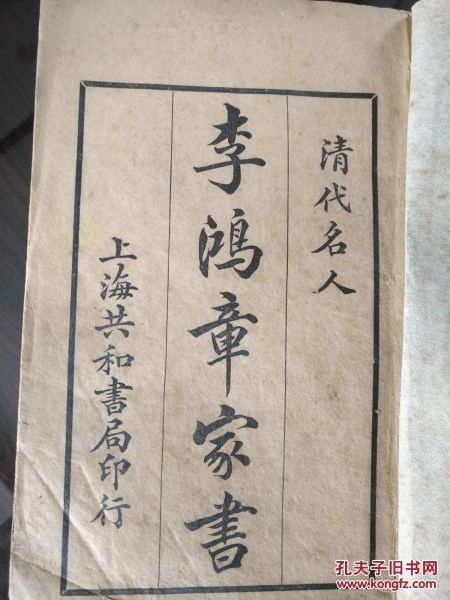 清代名人
李鴻章家書
上海共和書局印行
孔夫子旧书网
www.kongfz.com